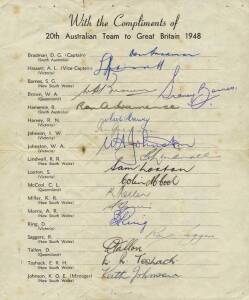 With the Compliments of
20th Australian Team to Great Britain 1948
Bradman, D. G. (Captain)
(South Australia)
Don Bradman
Hassett, A. L. (Vice-Captain)
(Victoria)
Barnes, S. G.
(New South Wales)
Sidney Barnes
Brown, W. A.
(Queensland)
W A Brown
Hamence, R. A.
(South Australia)
Ron A Hamence
Harvey, R. N.
(Victoria)
Johnson, I. W.
(Victoria)
Johnston, W. A.
(Victoria)
W A Johnston
Lindwall, R. R.
(New South Wales)
Loxton, S.
(Victoria)
Sam Loxton
McCool, C. L.
(Queensland)
Colin McCool
Miller, K. R.
(New South Wales)
Morris, A. R.
(New South Wales)
Ring, D.
(Victoria)
D Ring
Saggers, R.
(New South Wales)
Tallon, D.
(Queensland)
D Tallon
Toshack, E. R. H.
(New South Wales)
E. R. Toshack
Johnson, K. O. E. (Manager)
(New South Wales)
Keith Johnson